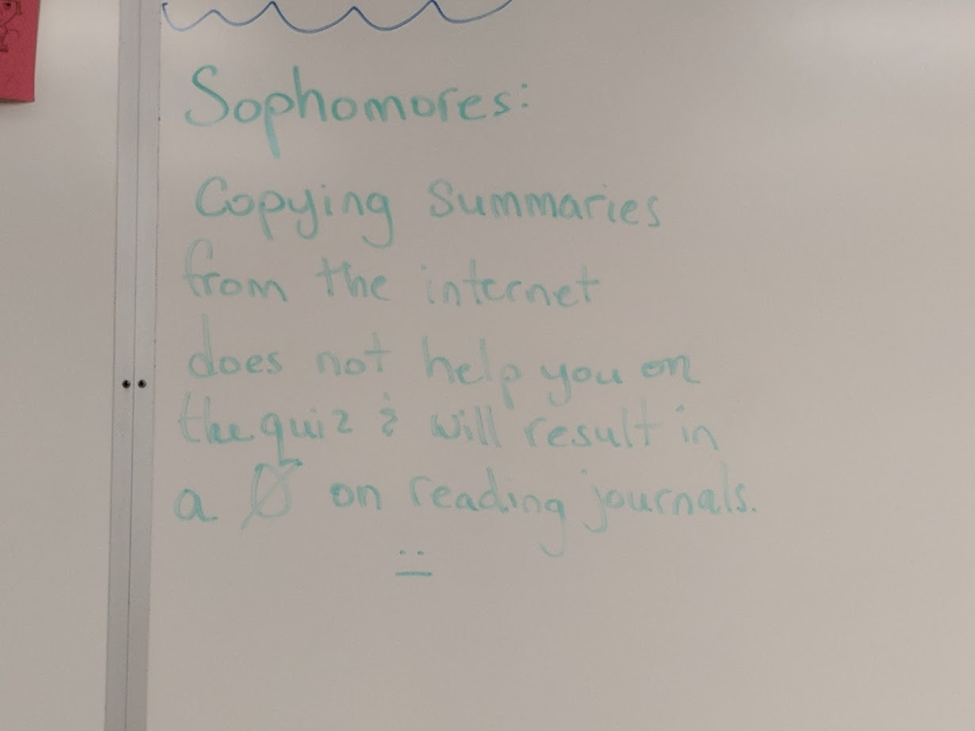 Sophomores:
Copying Summaries
from the internet
does not help you on
the quiz & will result in
a Ø on reading journals.